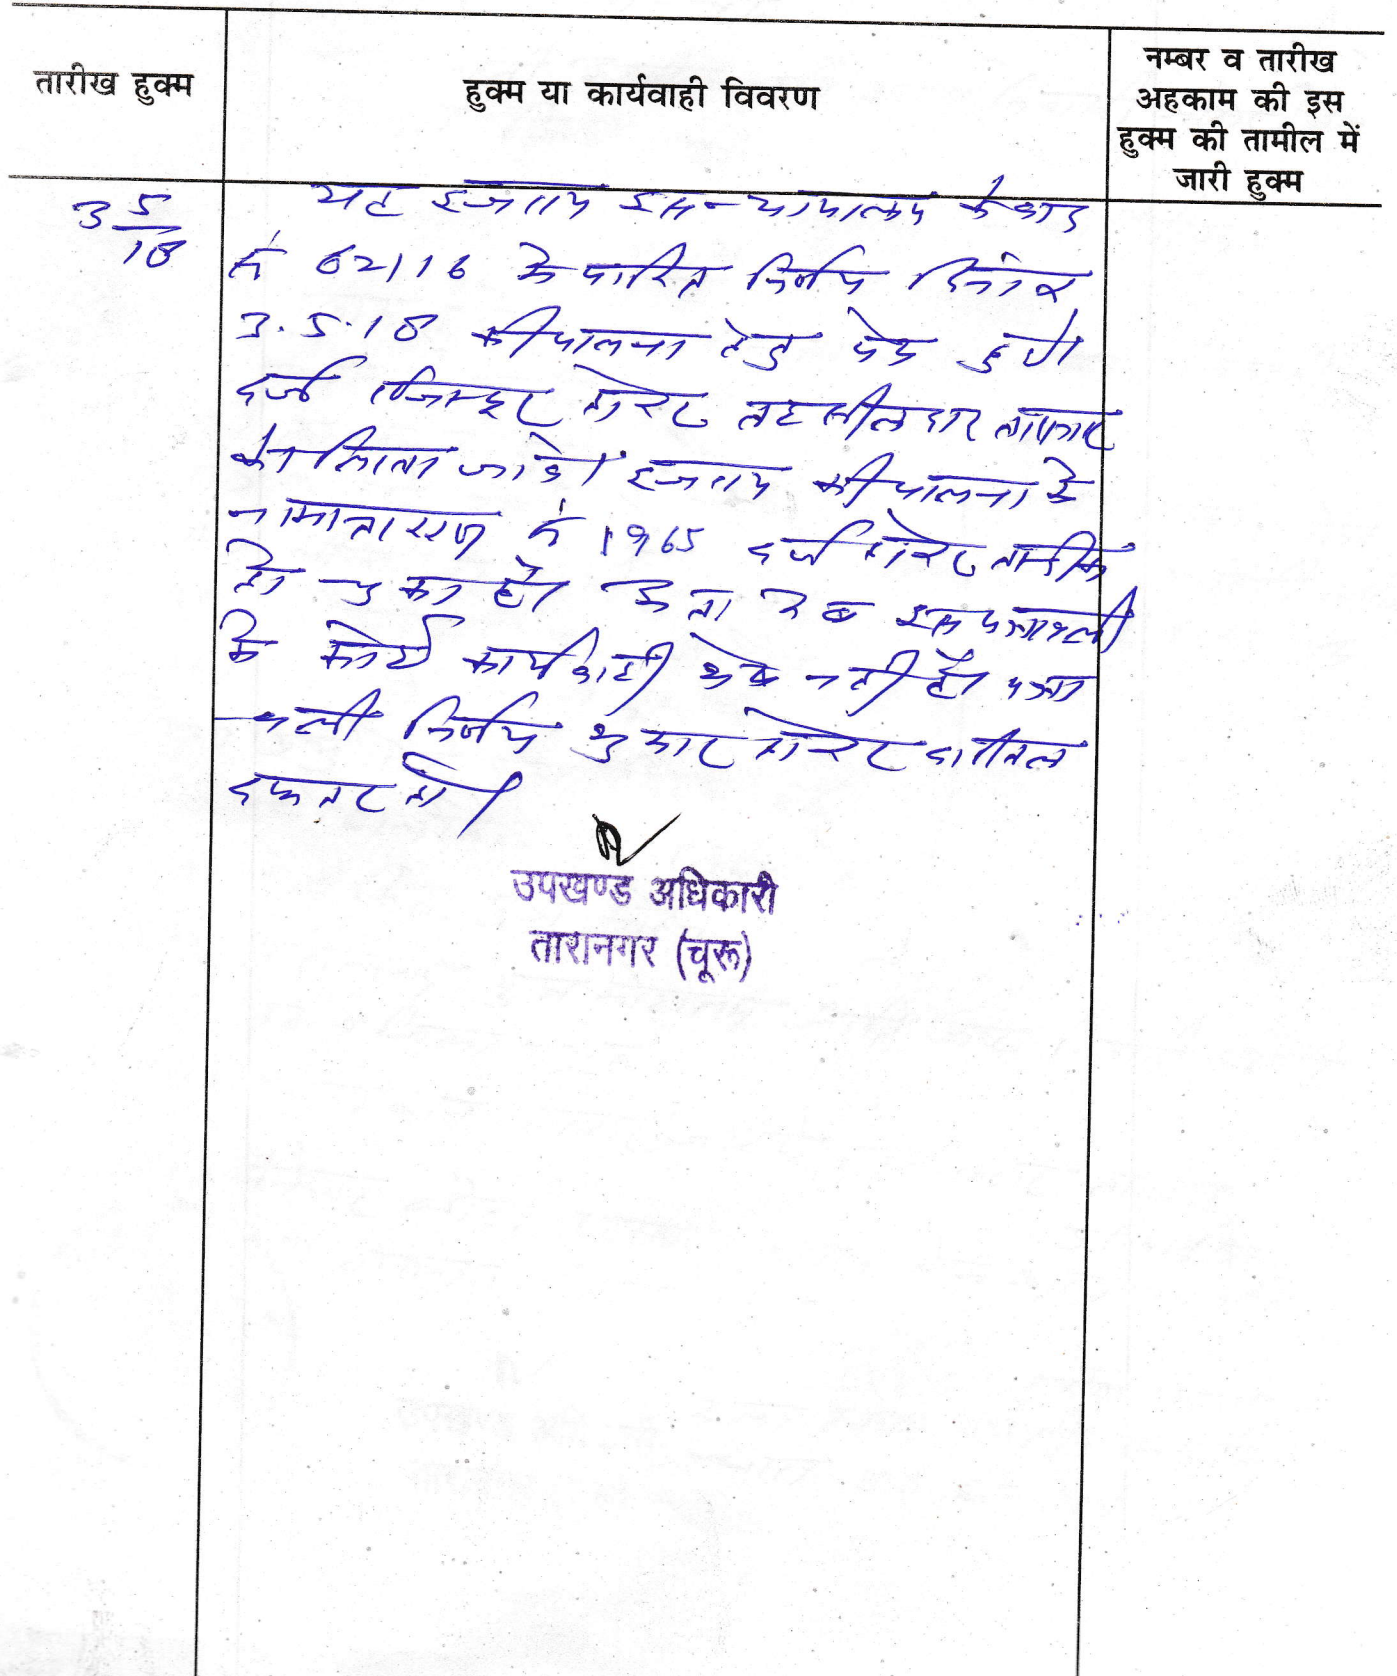 तारीख हुक्म
हुक्म या कार्यवाही विवरण
नम्बर व तारीख
अहकाम की इस
हुक्म की तामील में
जारी हुक्म
3 5/18
यह इजराय इस न्यायालय के वाद
सं 62/16 के पारित निर्णय दिनांक
3.5.18 की पालना हेतु पेश हुयी
दर्ज रजिस्टर होकर तहसीलदार तारानगर
को लिखा जावे। इजराय की पालना के
नामान्तरण सं 1965 दर्ज होकर तस्दीक
हो चुका है। इस पत्रावली
में कोई कार्यवाही शेष नही है। पत्रा
वली निर्णय शुमार होकर दाखिल
दफ्तर हो।
उपखण्ड अधिकारी
तारानगर (चूरू)